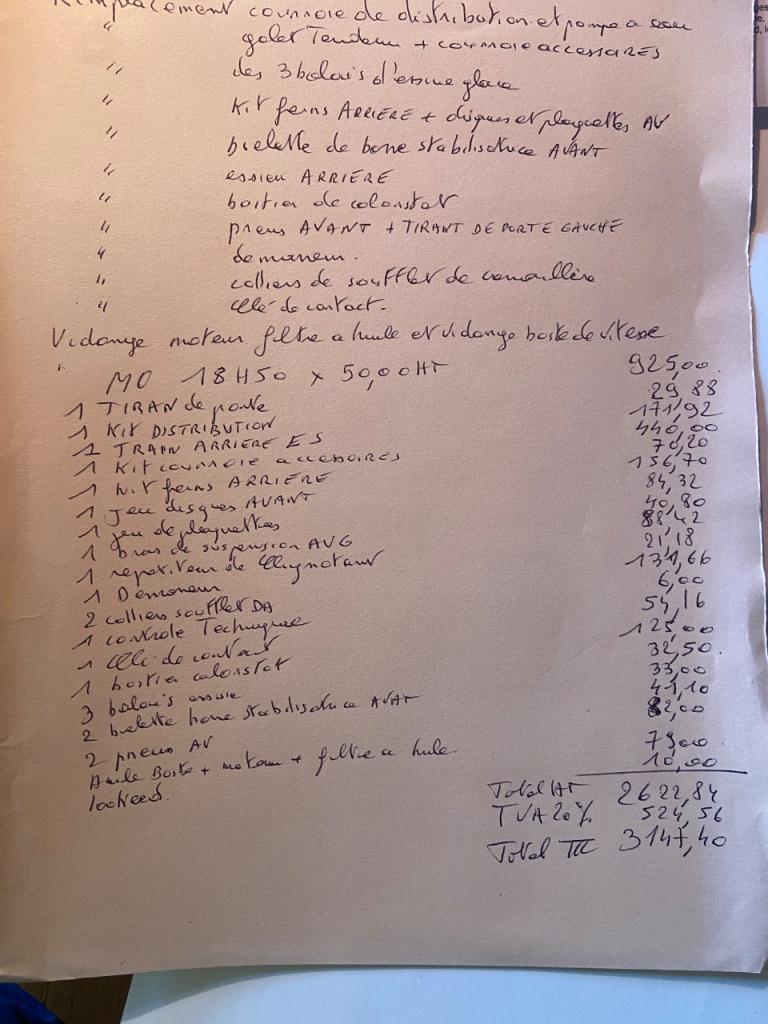 Remplacement courroie de distribution et pompe a eau
" galet Tendeur + courroie accessoires
" des 3 balais d'essuie glace
" Kit freins ARRIERE + disques et plaquettes AV
" bielette de barre stabilisatrice AVANT
" essieu ARRIERE
" boitier de calorstat
" pneus AVANT + TIRANT DE PORTE GAUCHE
" demareur.
" colliers de soufflet de cremaillère
" clé de contact.
Vidange moteur filtre a huile et vidange boite de vitesse
MO 18H50 x 50,00 HT 925,00
1 TIRAN de porte 29,88
1 KIT DISTRIBUTION 171,92
1 TRAIN ARRIERE ES 440,00
1 Kit courroie accessoires 70,20
1 Kit freins ARRIERE 156,70
1 jeu disques AVANT 84,32
1 jeu de plaquettes 40,80
1 bras de suspension AVG 88,42
1 repetiteur de clignotant 21,18
1 Demareur 131,66
2 colliers soufflet DA 6,00
1 controle Technique 54,16
1 clé de contact 125,00
1 boitier calorstat 32,50
3 balais essuie 33,00
2 bielette barre stabilisatrice AVAT 41,10
2 pneus AV 82,00
Huile Boite + moteur + filtre a huile. 79,00
lookeed. 10,00
Total HT 2622,84
TVA 20% 524,56
Total TTC 3147,40